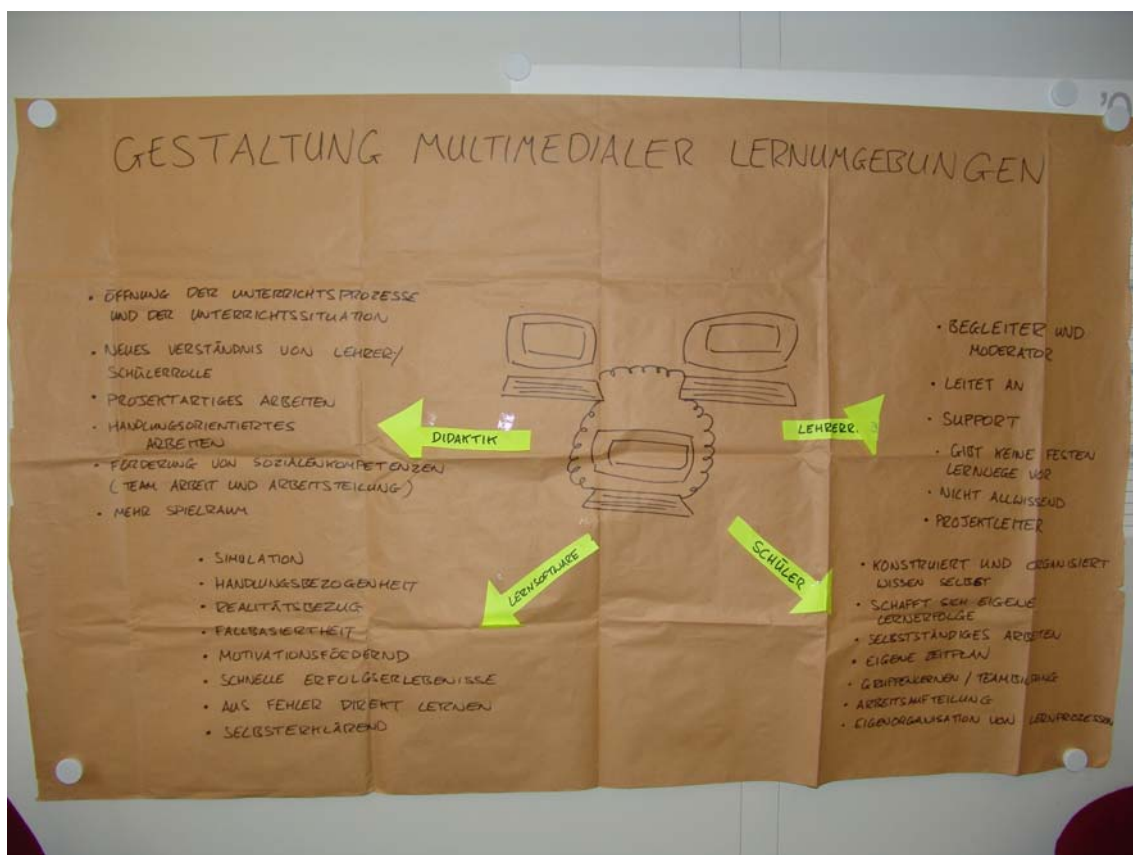 GESTALTUNG MULTIMEDIALER LERNUMGEBUNGEN
• ÖFFNUNG DER UNTERRICHTSPROZESSE
UND DER UNTERRICHTSSITUATION
• NEUES VERSTÄNDNIS VON LEHRER/
SCHÜLERROLLE
• PROJEKTARTIGES ARBEITEN
• HANDLUNGSORIENTIERTES
ARBEITEN
• FÖRDERUNG VON SOZIALENKOMPETENZEN
(TEAM ARBEIT UND ARBEITSTEILUNG)
• MEHR SPIELRAUM
DIDAKTIK
LEHRERR.
• BEGLEITER UND
MODERATOR
• LEITET AN
• SUPPORT
• GIBT KEINE FESTEN
LERNWEGE VOR
• NICHT ALLWISSEND
• PROJEKTLEITER
LERNSOFTWARE
• SIMULATION
• HANDLUNGSBEZOGENHEIT
• REALITÄTSBEZUG
• FALLBASIERTHEIT
• MOTIVATIONSFÖRDERND
• SCHNELLE ERFOLGSERLEBENISSE
• AUS FEHLER DIREKT LERNEN
• SELBSTERKLÄREND
SCHÜLER
• KONSTRUIERT UND ORGANISIERT
WISSEN SELBST
• SCHAFFT SICH EIGENE
LERNERFOLGE
• SELBSTSTÄNDIGES ARBEITEN
• EIGENE ZEITPLAN
• GRUPPENLERNEN / TEAMBILDUNG
• ARBEITSAUFTEILUNG
• EIGENORGANISATION VON LERNPROZESSEN